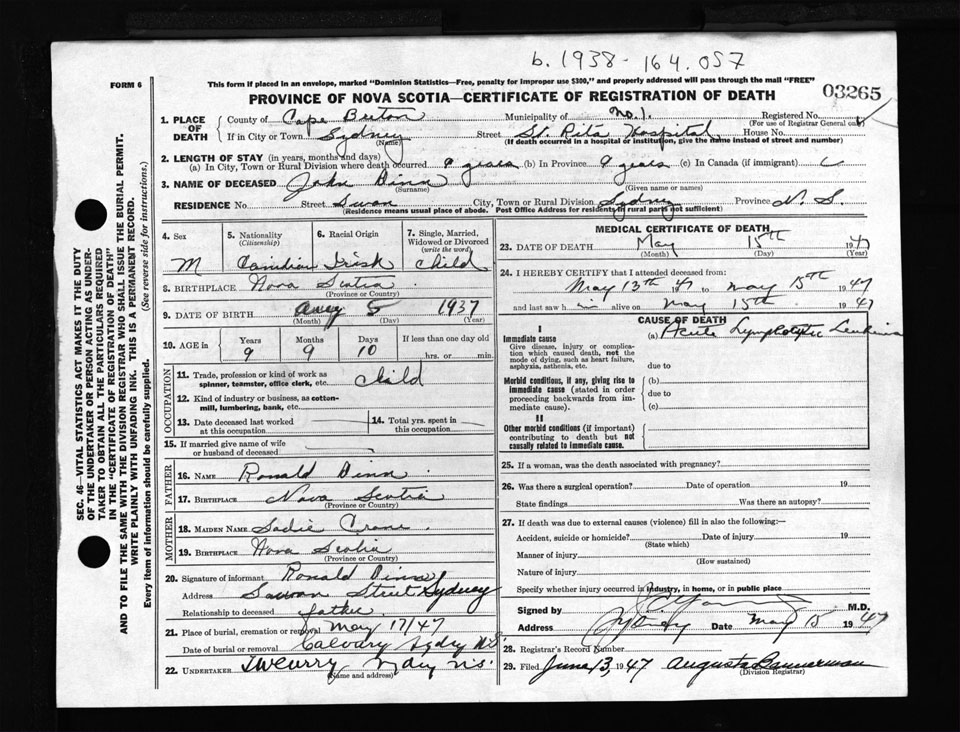 b. 1938 - 164.057
FORM 6
This form if placed in an envelope, marked "Dominion Statistics—Free, penalty for improper use $300," and properly addressed will pass through the mail "FREE"
PROVINCE OF NOVA SCOTIA—CERTIFICATE OF REGISTRATION OF DEATH
03265
1. PLACE OF DEATH
County of Cape Breton Municipality of No. 1. Registered No.
(For use of Registrar General only)
If in City or Town Sydney Street St. Rita Hospital House No.
(Name) (If death occurred in a hospital or institution, give the name instead of street and number)
2. LENGTH OF STAY (in years, months and days)
(a) In City, Town or Rural Division where death occurred 9 years (b) In Province 9 years (c) In Canada (if immigrant)
3. NAME OF DECEASED John Dinn
(Surname) (Given name or names)
RESIDENCE No. Street Swan City, Town or Rural Division Sydney Province N. S.
(Residence means usual place of abode. Post Office Address for residents in rural parts not sufficient)
4. Sex
M
5. Nationality
(Citizenship)
Canidian
6. Racial Origin
Irish
7. Single, Married, Widowed or Divorced
(write the word)
child
8. BIRTHPLACE Nova Scotia
(Province or Country)
9. DATE OF BIRTH 5 1937
(Month) (Day) (Year)
10. AGE in
Years Months Days If less than one day old
9 9 10 hrs. or min.
OCCUPATION
11. Trade, profession or kind of work as spinner, teamster, office clerk, etc. child
12. Kind of industry or business, as cotton-mill, lumbering, bank, etc.
13. Date deceased last worked at this occupation
14. Total yrs. spent in this occupation
15. If married give name of wife or husband of deceased
FATHER
16. NAME Ronald Dinn
17. BIRTHPLACE Nova Scotia
(Province or Country)
MOTHER
18. MAIDEN NAME Sadie Crane
19. BIRTHPLACE Nova Scotia
(Province or Country)
20. Signature of informant Ronald Dinn
Address Street Sydney
Relationship to deceased father
21. Place of burial, cremation or removal
Date of burial or removal
May 17/47
Calvary Sydney N.S.
22. UNDERTAKER T W Curry Sydney N.S.
(Name and address)
MEDICAL CERTIFICATE OF DEATH
23. DATE OF DEATH May 15th 1947
(Month) (Day) (Year)
24. I HEREBY CERTIFY that I attended deceased from:
May 13th 47 to May 15th 1947
and last saw him alive on May 15th 1947
CAUSE OF DEATH
I
Immediate cause
Give disease, injury or complication which caused death, not the mode of dying, such as heart failure, asphyxia, asthenia, etc.
(a) Acute Lymphocytic
due to
Morbid conditions, if any, giving rise to immediate cause (stated in order proceeding backwards from immediate cause).
(b)
due to
(c)
II
Other morbid conditions (if important) contributing to death but not causally related to immediate cause.
25. If a woman, was the death associated with pregnancy?
26. Was there a surgical operation? Date of operation 19
State findings Was there an autopsy?
27. If death was due to external causes (violence) fill in also the following:—
Accident, suicide or homicide? Date of injury 19
(State which)
Manner of injury
(How sustained)
Nature of injury
Specify whether injury occurred in industry, in home, or in public place
Signed by M.D.
Address Sydney Date May 15 1947
28. Registrar's Record Number
29. Filed June 13, 1947 Augusta Bannerman
(Division Registrar)
SEC. 46—VITAL STATISTICS ACT MAKES IT THE DUTY
OF THE UNDERTAKER OR PERSON ACTING AS UNDER-
TAKER TO OBTAIN ALL THE PARTICULARS REQUIRED
IN THE "CERTIFICATE OF REGISTRATION OF DEATH"
AND TO FILE THE SAME WITH THE DIVISION REGISTRAR WHO SHALL ISSUE THE BURIAL PERMIT.
WRITE PLAINLY WITH UNFADING INK. THIS IS A PERMANENT RECORD.
Every item of information should be carefully supplied. (See reverse side for instructions.)